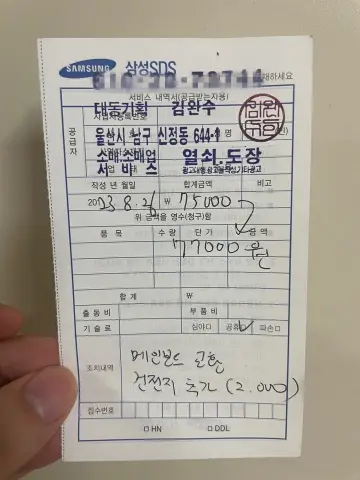 SAMSUNG 삼성SDS
서비스 내역서(공급받는자용)
공급자
대동기획 김완수
울산시 남구 신정동 644-
소매.소매업 열쇠.도장
서비스
작성 년월일 합계금액 비고
2023.8.26 ₩ 75000
위 금액을 영수(청구)함
품목 수량 단가 금액
77000원
합계 ₩
출동비 부품비
기술료 심야□ 공휴□ 파손□
조치내역
메인보드 교환
건전지 추가 (2.000)
접수번호
□ HN □ DDL